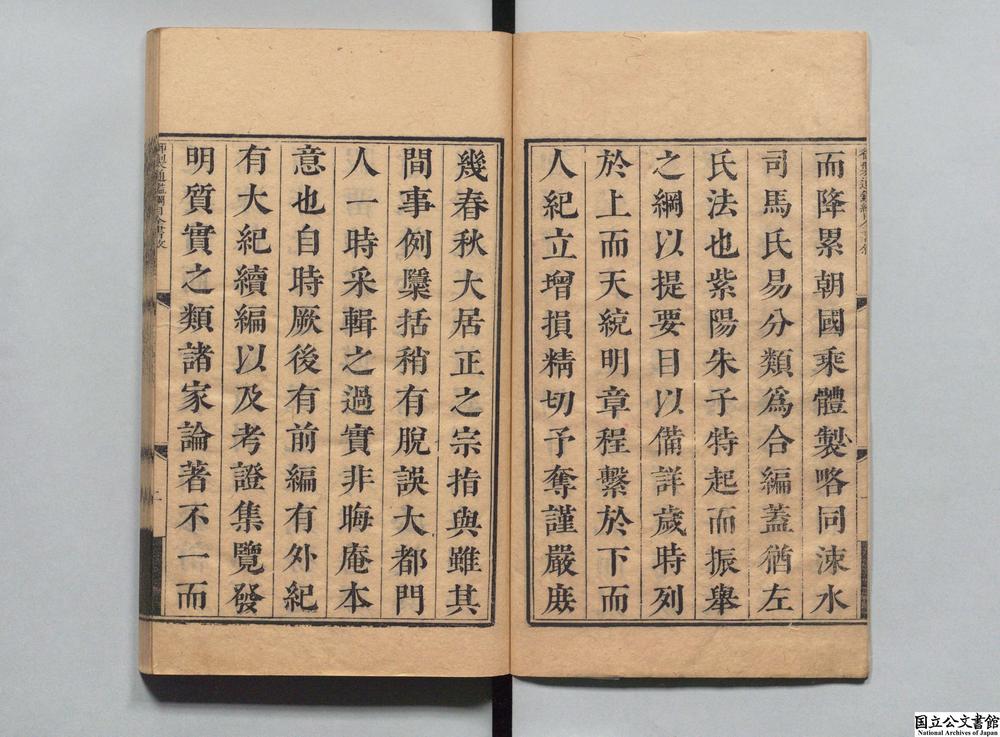 而降累朝國乘體製略同涑水
司馬氏易分類爲合編蓋猶左
氏法也紫陽朱子特起而振舉
之綱以提要目以備詳歲時列
於上而天統明章程繫於下而
人紀立增損精切予奪謹嚴庻
幾春秋大居正之宗指與雖其
間事例檃括稍有脫誤大都門
人一時采輯之過實非晦庵本
意也自時厥後有前編有外紀
有大紀續編以及考證集覽發
明質實之類諸家論著不一而
國立公文書館
National Archives of Japan